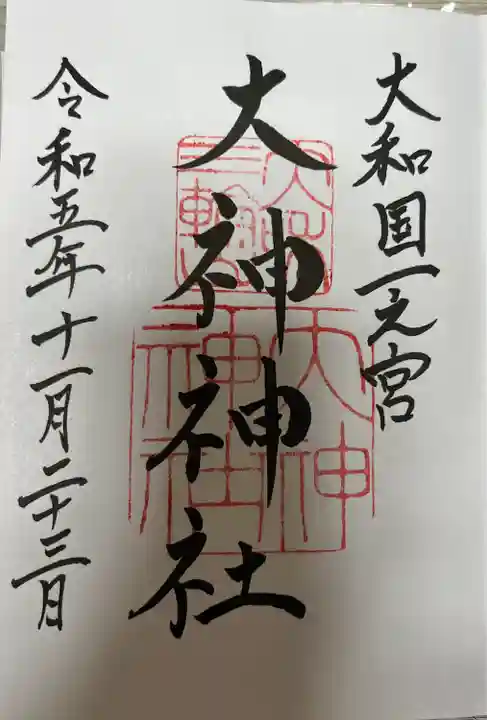 大和国一之宮
大神神社
令和五年十一月二十三日
大神
神社